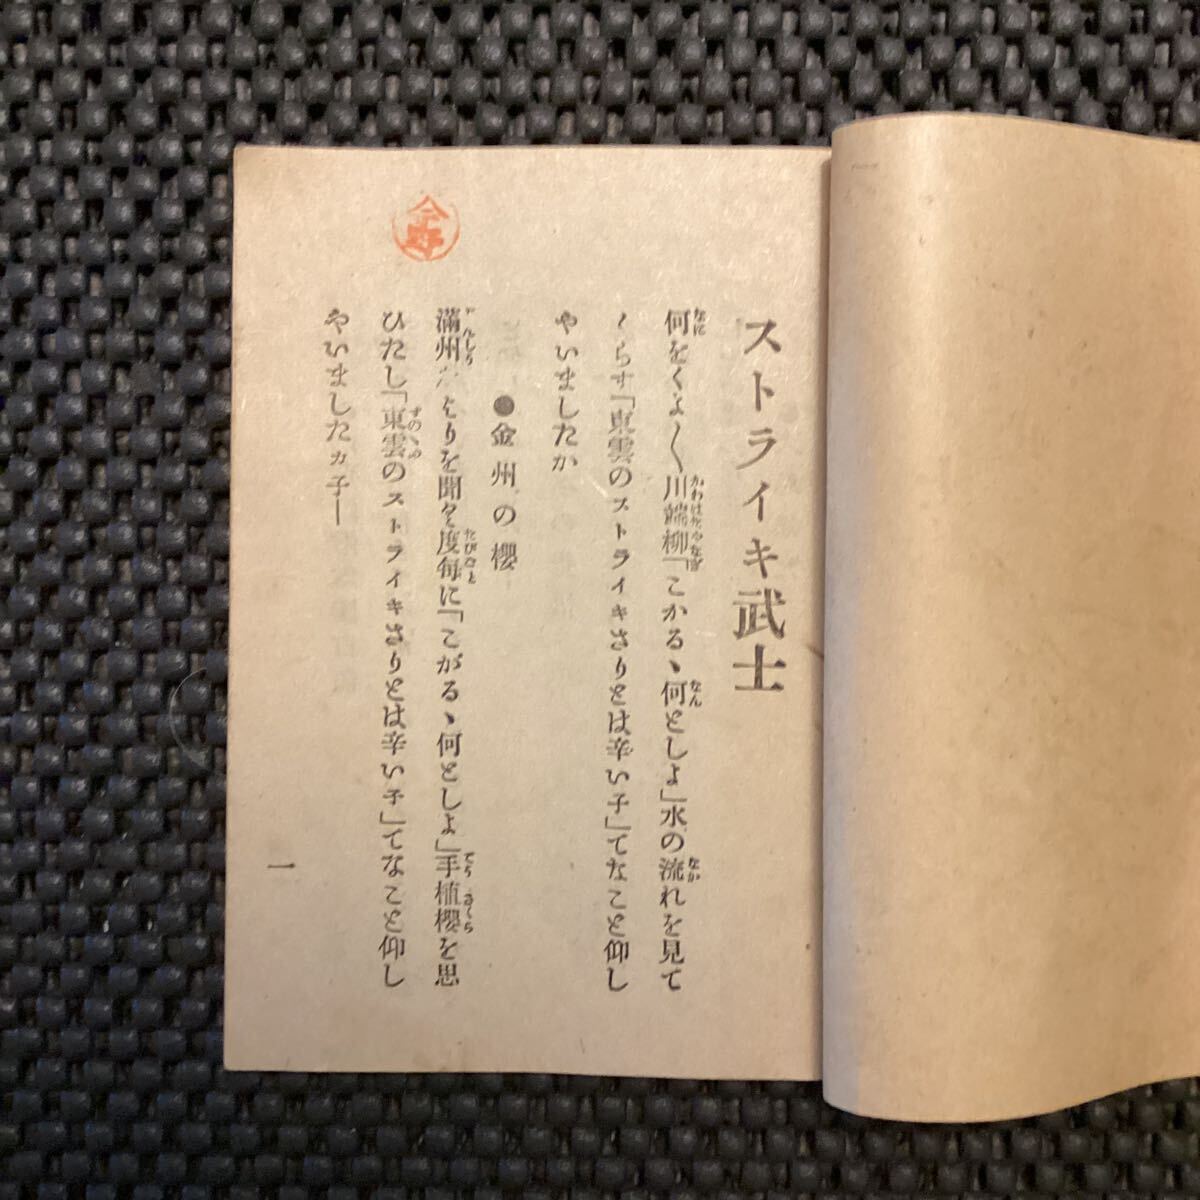 ストライキ武士
何をくよ〱川端柳「こがるゝ何としよ」水の流れを見て
くらす「東雲のストライキさりとは辛い子」てなこと仰し
やいましたか
●金州の櫻
滿州を聞く度每に「こがるゝ何としよ」手植櫻を思
ひだし「東雲のストライキさりとは辛い子」てなこと仰し
やいましたカ子ー
一